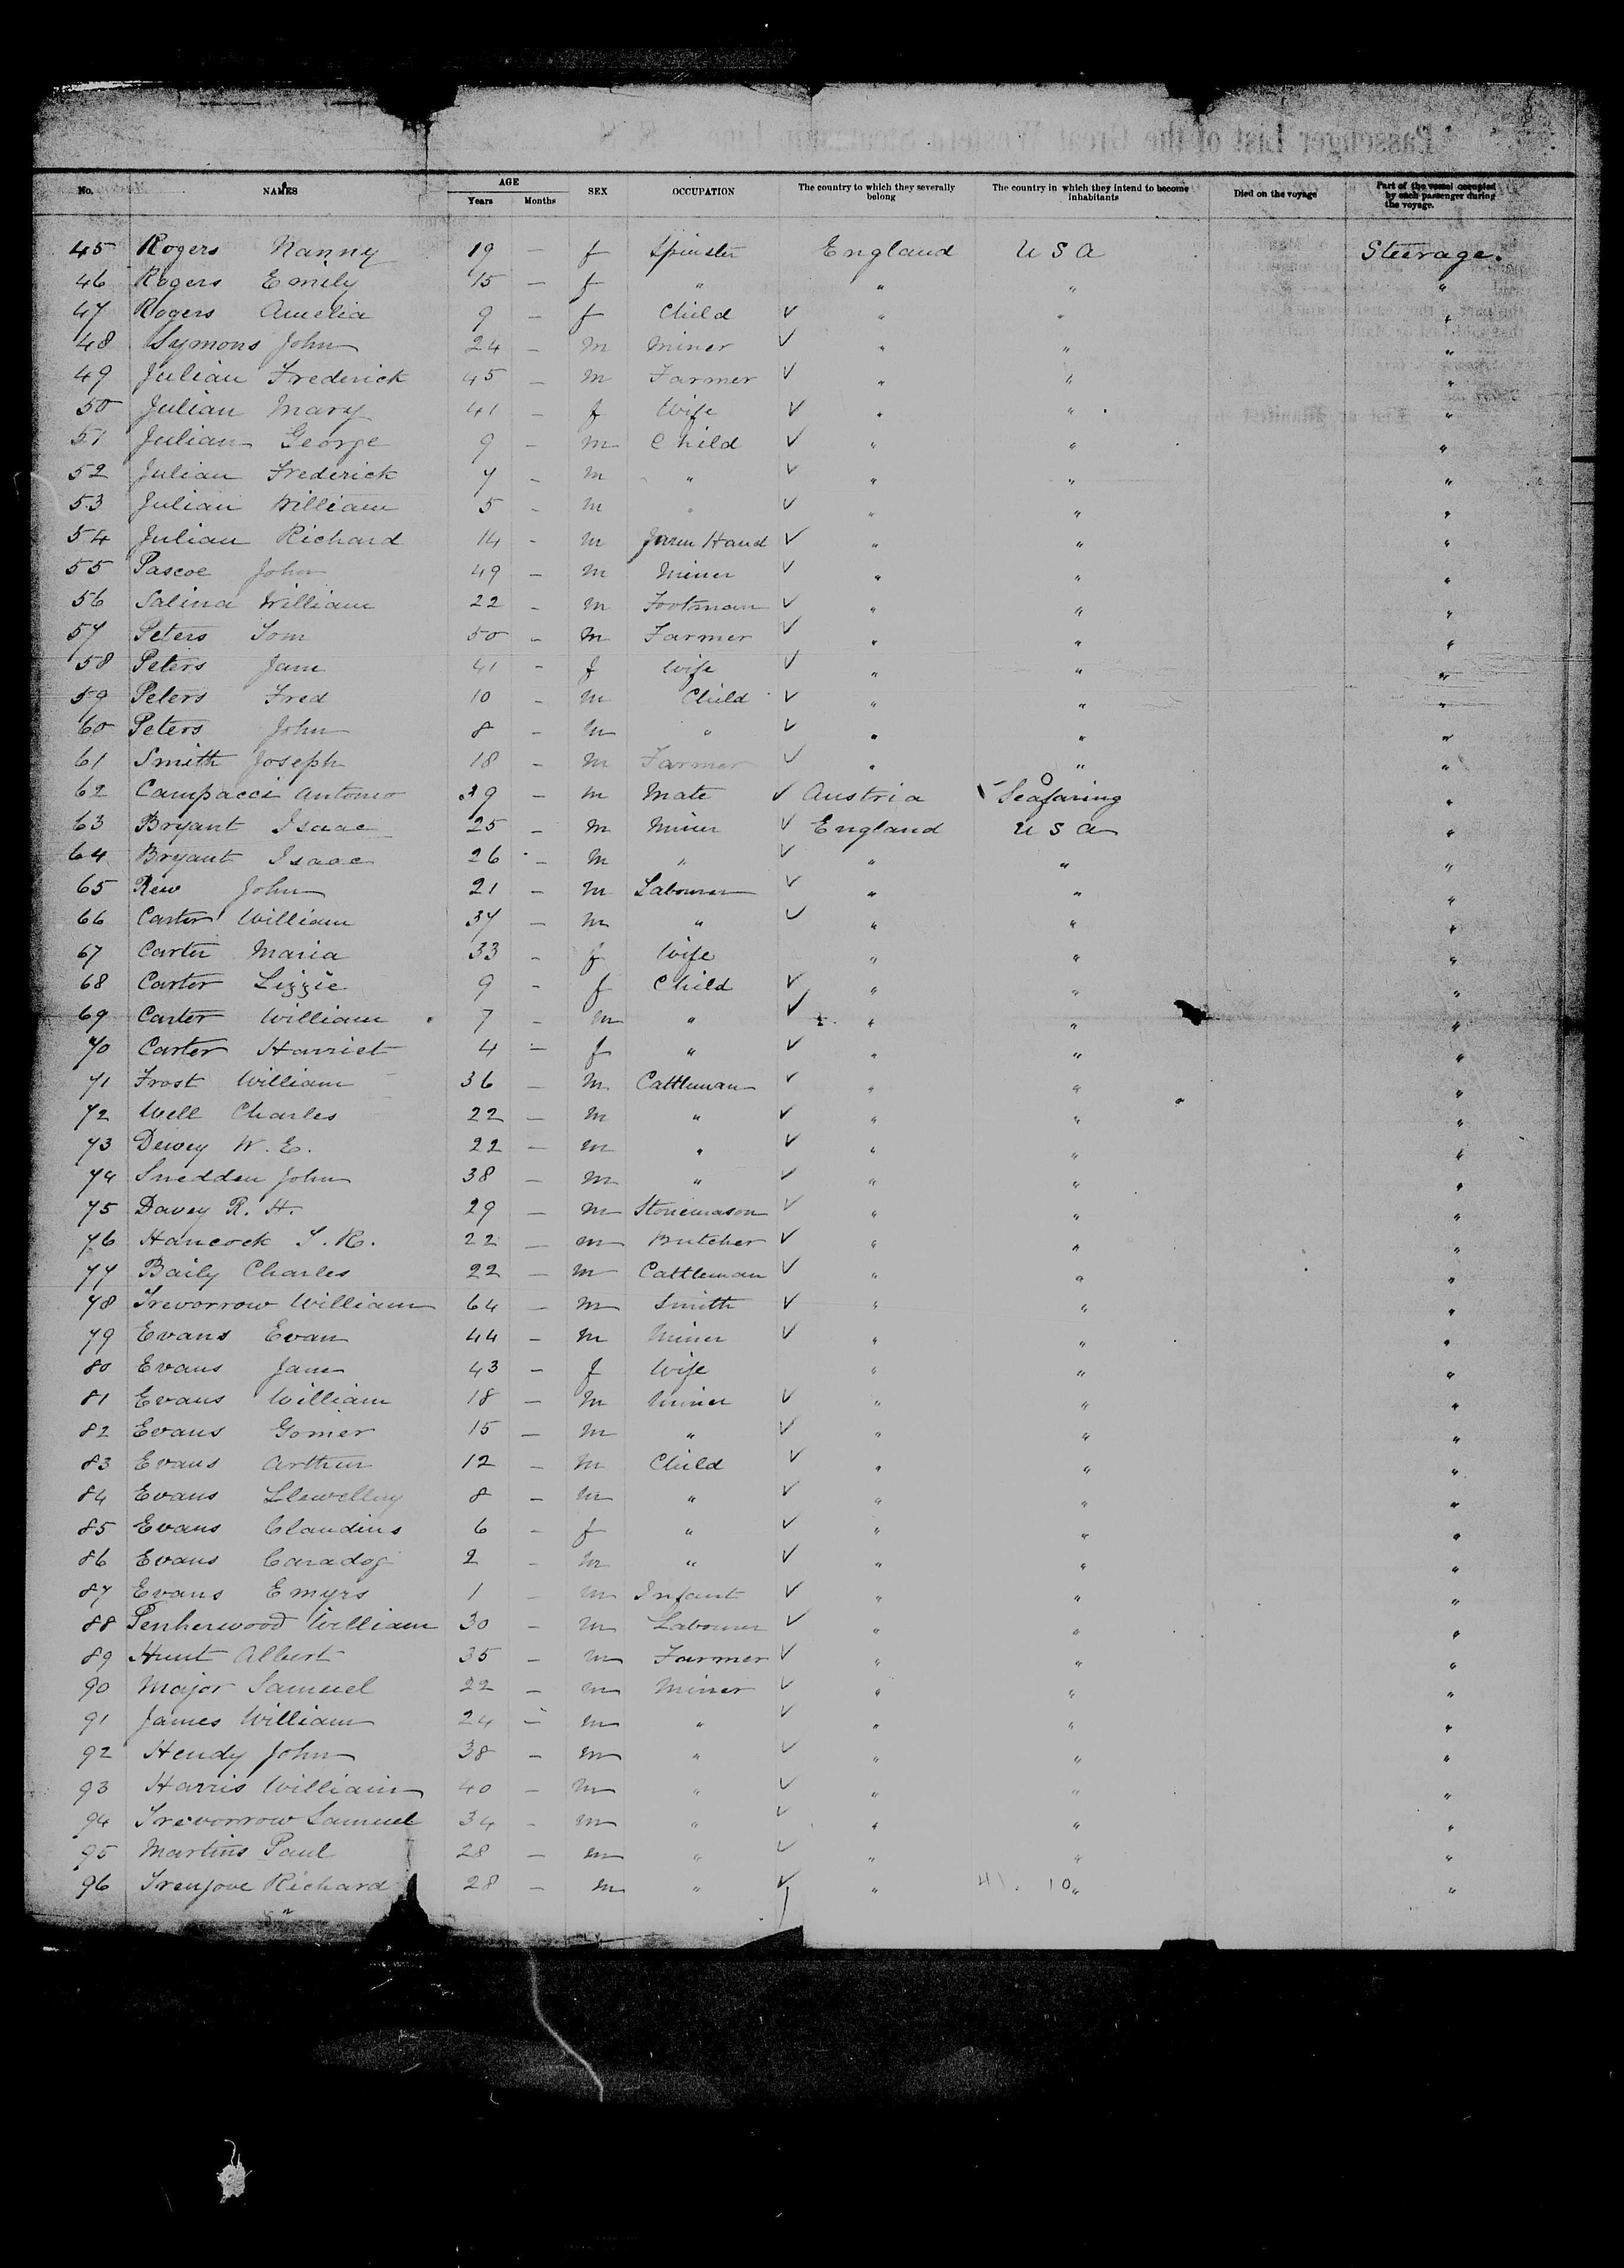 Passenger List of the Great Western Steamship Line S. S.
No. NAMES AGE Years Months SEX OCCUPATION The country to which they severally belong The country in which they intend to become inhabitants Died on the voyage Part of the vessel occupied by each passenger during the voyage.
45 Rogers Nanny 19 — f Spinster England U S A Steerage.
46 Rogers Emily 15 — f " " " "
47 Rogers Amelia 9 — f Child ✓ " " "
48 Symons John 24 — m Miner ✓ " " "
49 Julian Frederick 45 — m Farmer ✓ " " "
50 Julian Mary 41 — f Wife ✓ " " "
51 Julian George 9 — m Child ✓ " " "
52 Julian Frederick 7 — m " ✓ " " "
53 Julian William 5 — m " ✓ " " "
54 Julian Richard 14 — m Farm Hand ✓ " " "
55 Pascoe John 49 — m Miner ✓ " " "
56 Salina William 22 — m Footman ✓ " " "
57 Peters Tom 50 — m Farmer ✓ " " "
58 Peters Jane 41 — f Wife ✓ " " "
59 Peters Fred 10 — m Child ✓ " " "
60 Peters John 8 — m " ✓ " " "
61 Smith Joseph 18 — m Farmer ✓ " " "
62 Campacci Antonio 39 — m Mate ✓ Austria Seafaring "
63 Bryant Isaac 25 — m Miner ✓ England U S A "
64 Bryant Isaac 26 — m " ✓ " " "
65 Rew John 21 — m Labourer ✓ " " "
66 Carter William 37 — m " ✓ " " "
67 Carter Maria 33 — f Wife " " "
68 Carter Lizzie 9 — f Child ✓ " " "
69 Carter William 7 — m " ✓ " " "
70 Carter Harriet 4 — f " ✓ " " "
71 Frost William 36 — m Cattleman ✓ " " "
72 Well Charles 22 — m " ✓ " " "
73 Dewey W. E. 22 — m " ✓ " " "
74 Snedden John 38 — m " ✓ " " "
75 Davey R. H. 29 — m Stonemason ✓ " " "
76 Hancock S. R. 22 — m Butcher ✓ " " "
77 Baily Charles 22 — m Cattleman ✓ " " "
78 Trevorrow William 64 — m Smith ✓ " " "
79 Evans Evan 44 — m Miner ✓ " " "
80 Evans Jane 43 — f Wife " " "
81 Evans William 18 — m Miner ✓ " " "
82 Evans Gomer 15 — m " ✓ " " "
83 Evans Arthur 12 — m Child ✓ " " "
84 Evans Llewellny 8 — m " ✓ " " "
85 Evans Claudius 6 — f " ✓ " " "
86 Evans Caradog 2 — m " ✓ " " "
87 Evans Emyrs 1 — m Infant ✓ " " "
88 Penherwood William 30 — m Labourer ✓ " " "
89 Hunt Albert 35 — m Farmer ✓ " " "
90 Major Samuel 22 — m Miner ✓ " " "
91 James William 24 — m " ✓ " " "
92 Hendy John 38 — m " ✓ " " "
93 Harris William 40 — m " ✓ " " "
94 Trevorrow Samuel 34 — m " ✓ " " "
95 Martins Paul 28 — m " ✓ " " "
96 Trenjove Richard 28 — m " ✓ " 41. 10 " "